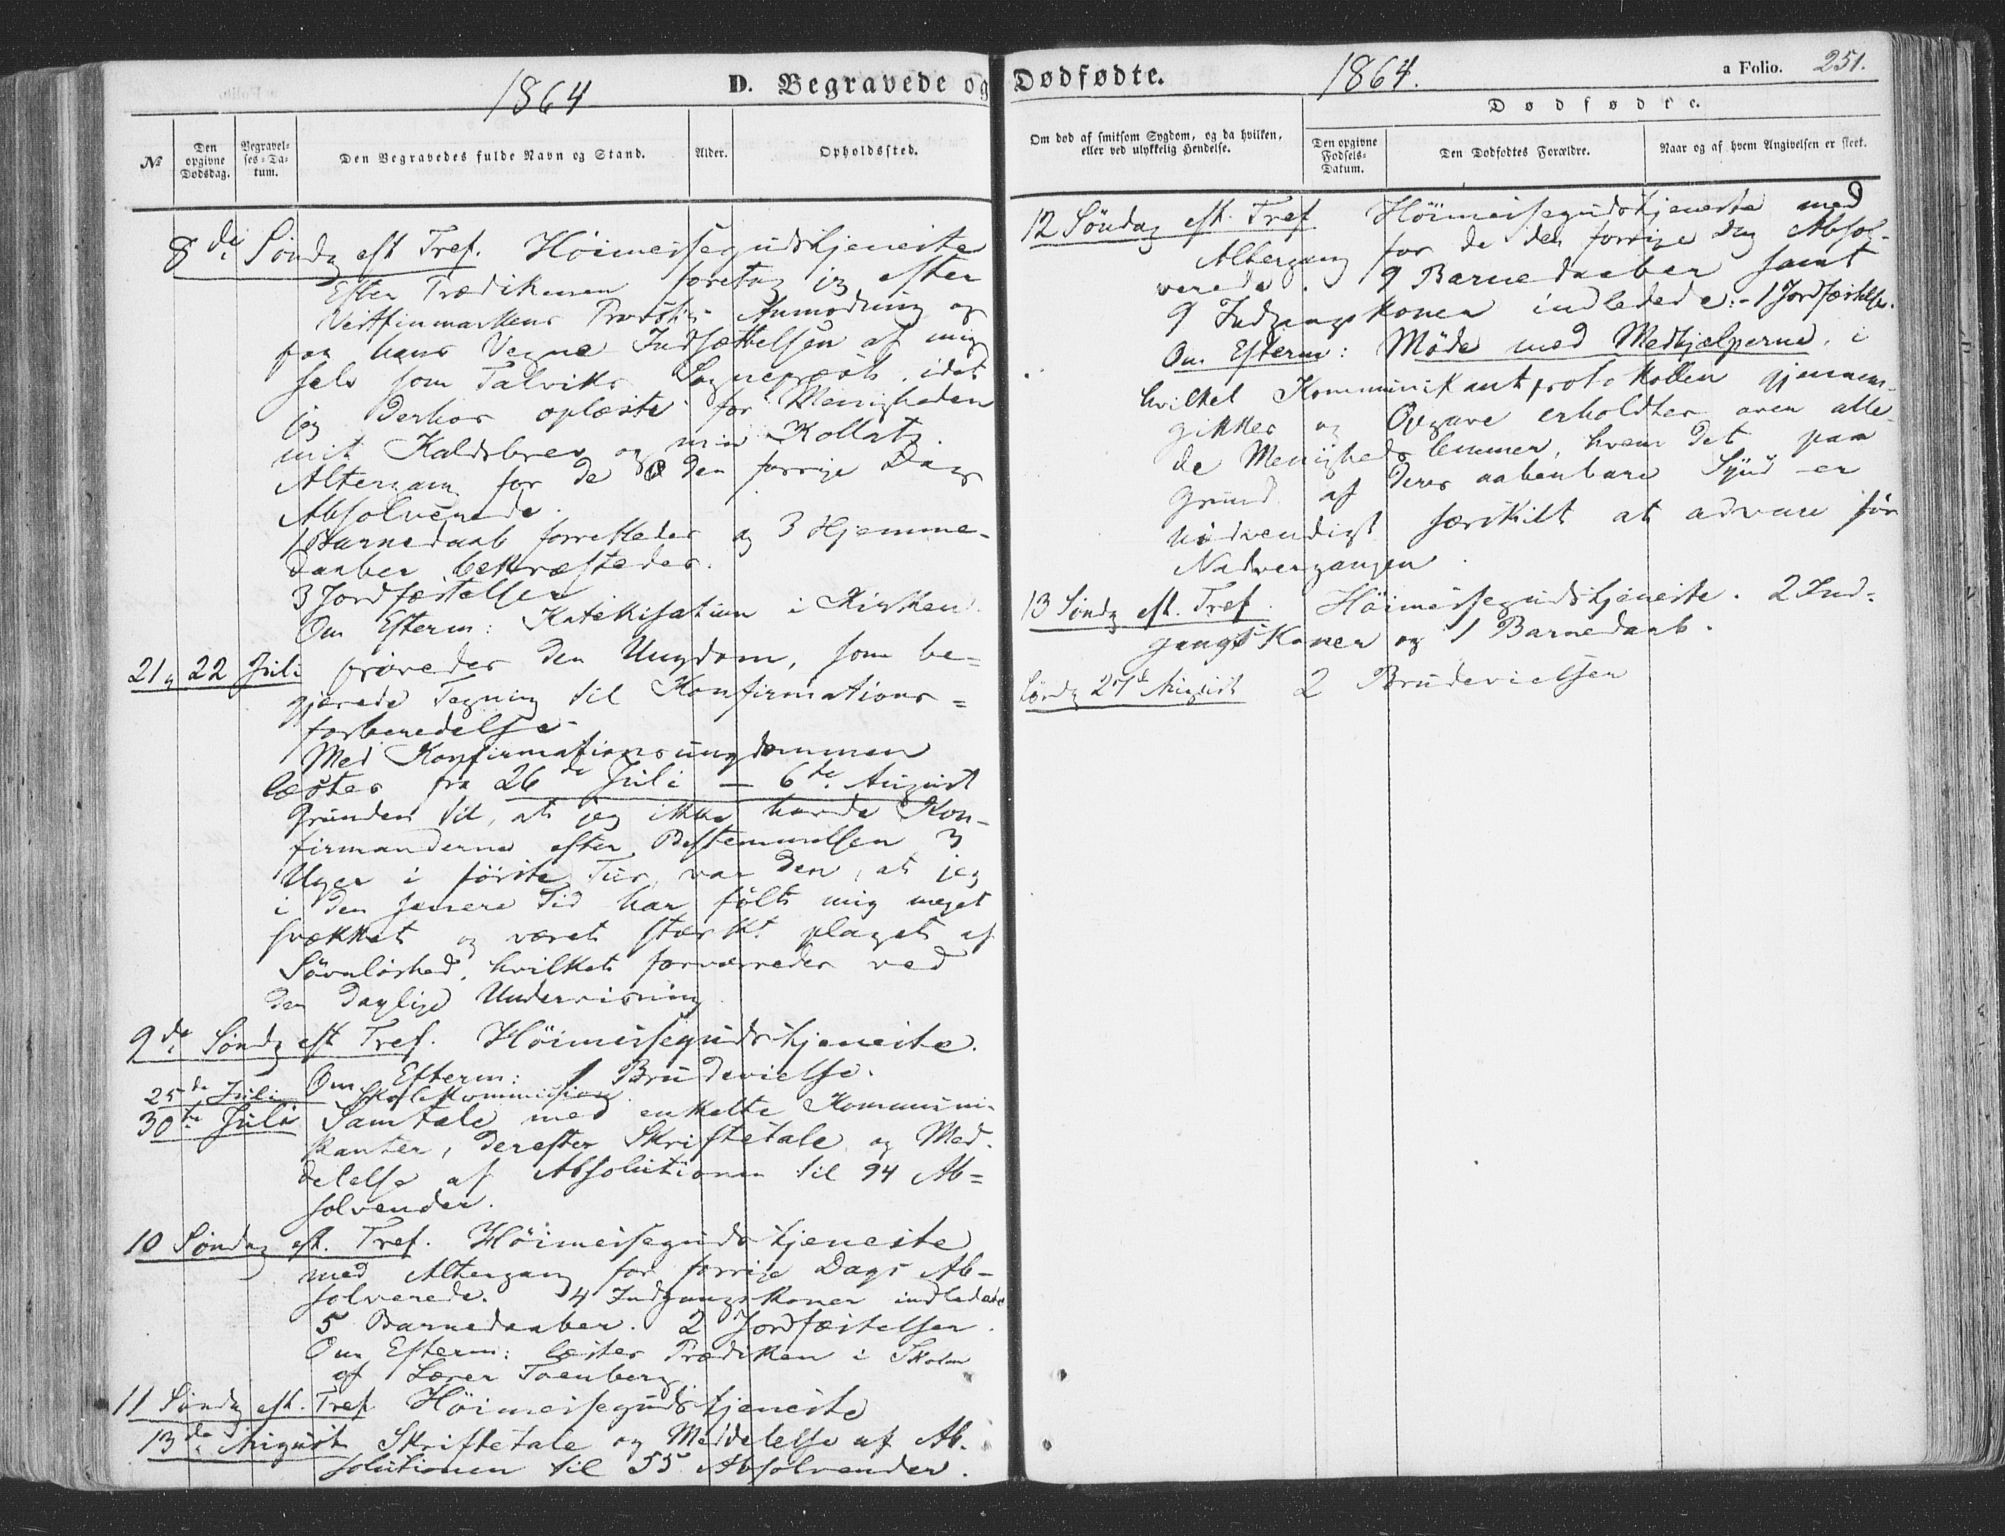 1864
D. Begravede og Dødfødte.
1864.
a Folio. 251.
Dødfødte.
№
Den opgivne Dødsdag.
Begravelses-Datum.
Den Begravedes fulde Navn og Stand.
Alder.
Opholdssted.
Om død af smitsom Sygdom, og da hvilken, eller ved ulykkelig Hendelse.
Den opgivne Fødsels-Datum.
Den Dødfødtes Forældre.
Naar og af hvem Angivelsen er skeet.
8de Søndg eft Tref. Höimessegudstjeneste
Efter Prædikenen foretog jeg efter
Vestfinmarkens Provsties Anmodning og
paa hans Vegne Indsættelsen af mig
selv som Talviks Sognepræst, idet
jeg derhos oplæste for Menigheden
mit Kaldsbrev og min Kollats.
Altergang for de den forrige Dag
Absolverede.
1 Barnedaab forrettedes og 3 Hjemme-
daaber bekræftedes.
3 Jordfæstelser
Om Efterm: Katekisation i Kirken.
21 og 22 Juli prøvedes den Ungdom, som be=
gjærede Tegning til Konfirmations=
forberedelse
Med Konfirmationsungdommen
læstes fra 26de Juli — 6te August
Grunden til, at jeg ikke havde Kon-
firmanderne efter Bestemmelsen 3
Uger i förste Tur, var den, at jeg
i den senere Tid har følt mig meget
svækket og været stærkt plaget af
Sövnlöshed, hvilket forværredes ved
den daglige Undervisning.
9de Søndg eft Tref. Höimessegudstjeneste.
Om Efterm: 1 Brudevielse.
25de Juli Skolekommission
30te Juli Samtale med enkelte Kommuni-
kanter, derefter Skriftetale og Med-
delelse af Absolutionen til 94 Ab=
solvender.
10 Søndag eft. Tref. Höimessegudstjeneste
med Altergang for forrige Dags Ab-
solverede. 4 Indgangskoner indledede
5 Barnedaaber. 2 Jordfæstelser.
Om Efterm: læstes Prædiken i Skolen
af Lærer
11 Søndg eft. Tref. Höimessegudstjeneste
13de August Skriftetale og Meddelelse af Ab-
solutionen til 55 Absolvender.
12 Søndag eft. Tref Höimessegudstjeneste med
Altergang for de den forrige Dag Absol-
verede. 9 Barnedaaber samt
9 Indgangskoner indledede. - 1 Jordfæstelse.
Om Efterm: Møde med Medhjælperne, i
hvilket Kommunikantprotokollen gjennem-
gikkes og Opgave erholdtes over alle
de Menighedslemmer, hvem det paa
Grund af deres aabenbare Synd er
nødvendigt særskilt at advare før
Nadvergangen.
13 Søndg eft. Tref. Höimessegudstjeneste. 2 Ind-
gangskoner og 1 Barnedaab.
Søndg 27de August 2 Brudevielser